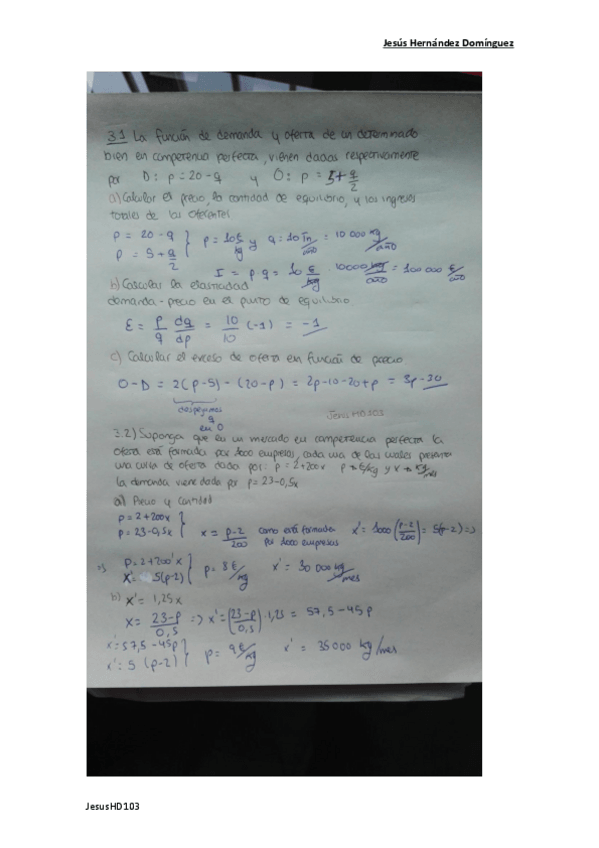 Jesús Hernández Domínguez
3.1 La función de demanda y oferta de un determinado
bien en competencia perfecta, vienen dadas respectivamente
por D: p = 20 - q y O: p = 5 + q/2
a) Calcular el precio, la cantidad de equilibrio, y los ingresos
totales de los oferentes
p = 20 - q
p = 5 + q/2 } p = 10 €/kg y q = 10 Tn/año = 10 000 kg/año
I = p q = 10 €/kg · 10000 kg/año = 100 000 €/año
b) Calcular la elasticidad
demanda - precio en el punto de equilibrio
E = p/q dq/dp = 10/10 (-1) = -1
c) Calcular el exceso de oferta en función de precio
O - D = 2(p-5) - (20-p) = 2p-10-20+p = 3p-30
despejamos
q
en O
Jesus HD103
3.2) Suponga que en un mercado en competencia perfecta la
oferta está formada por 1000 empresas, cada una de las cuales presenta
una curva de oferta dada por: p = 2+200x p → €/kg y x → kg/mes
la demanda viene dada por p = 23-0,5x
a) Precio y cantidad
p = 2+200x
p = 23-0,5x } x = p-2/200 como está formada por 1000 empresas x' = 1000 (p-2/200) = 5(p-2) =>
=> p = 2+200'x
x' = 5(p-2) } p = 8 €/kg x' = 30 000 kg/mes
b) x' = 1,25x
x = 23-p/0,5 => x' = (23-p/0,5) · 1,25 = 57,5 - 45p
x' = 57,5 - 45p
x' = 5 (p-2) } p = 9 €/kg x' = 35000 kg/mes
JesusHD103